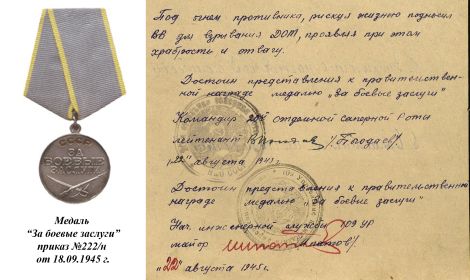 СССР
ЗА
БОЕВЫЕ
ЗАСЛУГИ
Медаль
“За боевые заслуги”
приказ №222/н
от 18.09.1945 г.
Под огнем противника, рискуя жизнью подносил
ВВ для взрывания ДОТ, проявляя при этом
храбрость и отвагу.
Достоин представления к правительствен-
ной награде медалью „За боевые заслуги"
Командир отдельной саперной Роты
лейтенант
августа 1945 г.
Достоин представления к правительственной
награде медалью „За боевые заслуги"
Нач. инженерной службы 109 УР
майор
„22" августа 1945г.